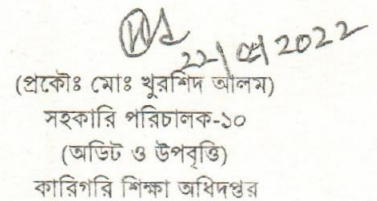 22/05/2022
(প্রকৌঃ মোঃ খুরশিদ আলম)
সহকারি পরিচালক-১০
(অডিট ও উপবৃত্তি)
কারিগরি শিক্ষা অধিদপ্তর